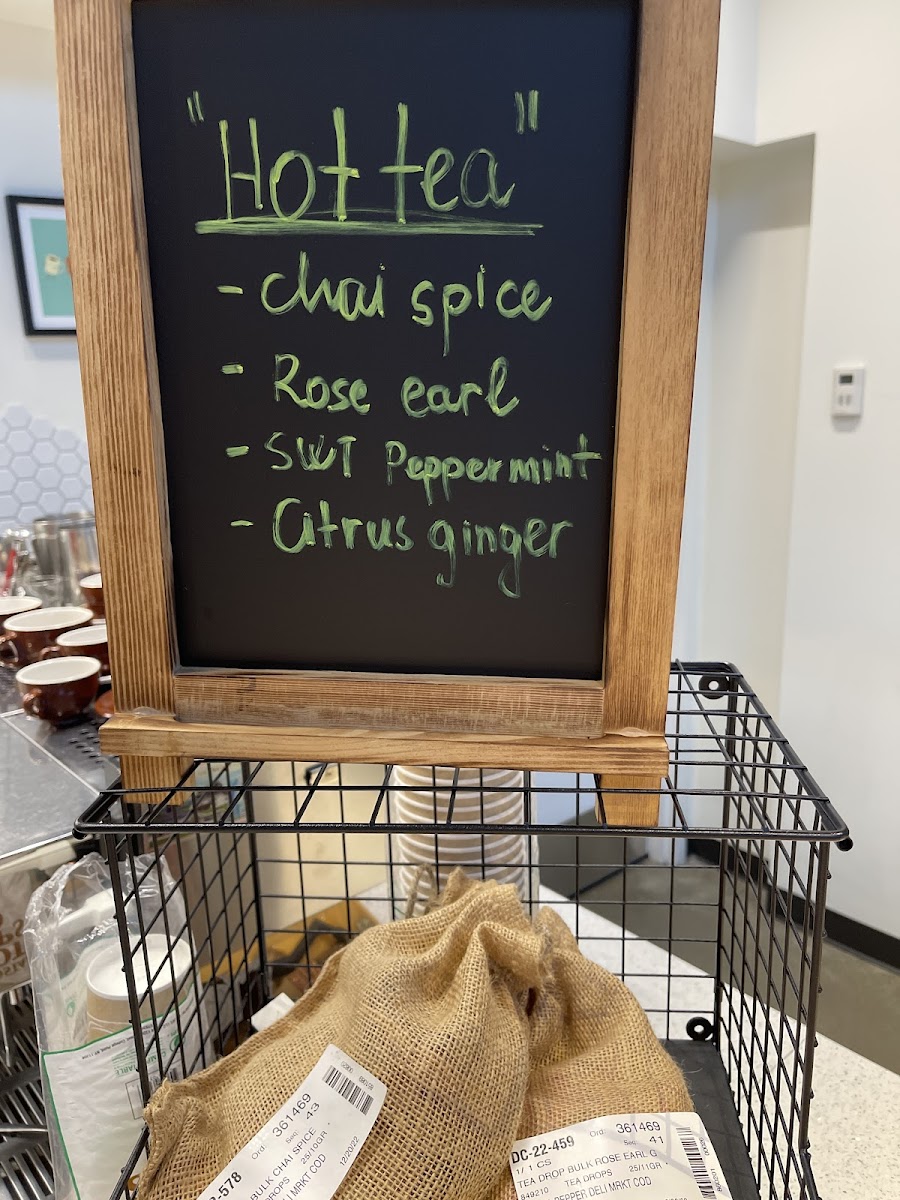 "Hot tea"
- Chai spice
- Rose earl
- SWT Peppermint
- Citrus ginger
361469
Ord:
Seq: 43
BULK CHAI SPICE
25/10GR
DROPS
DELI MRKT COD
12/20/22
-578
DC-22-459
Ord: 361469
Seq: 41
1/ 1 CS
TEA DROP BULK ROSE EARL G
849210 TEA DROPS 25/11GR
PEPPER DELI MRKT COD